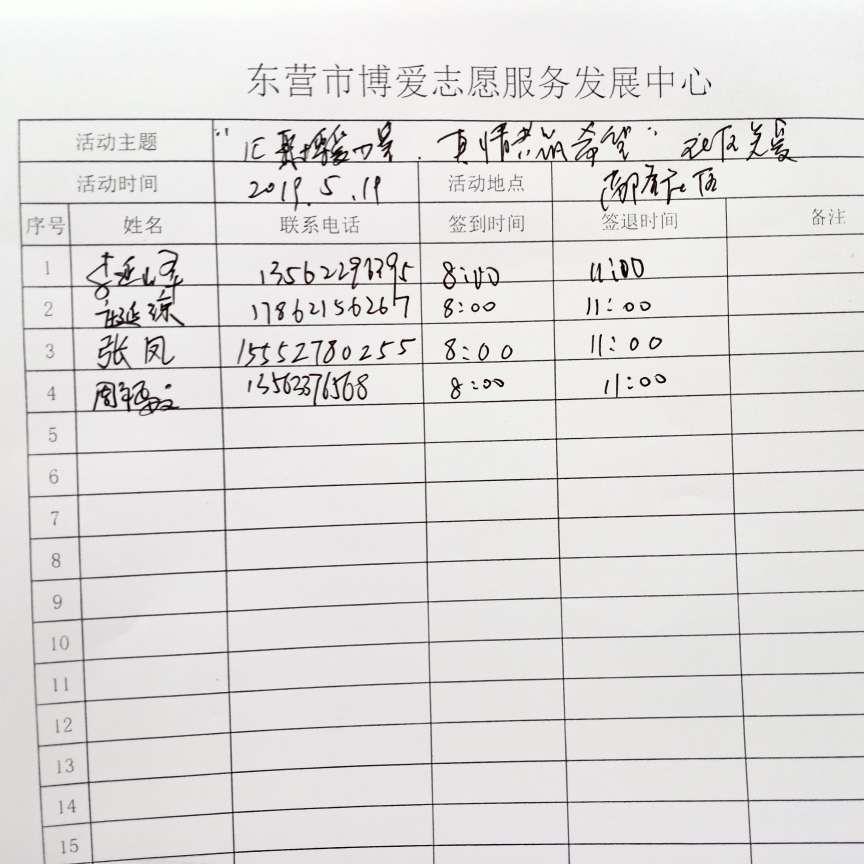 东营市博爱志愿服务发展中心
活动主题 “汇聚博爱力量、真情共筑希望” 社区关爱
活动时间 2019.5.19 活动地点 社区
序号 姓名 联系电话 签到时间 签退时间 备注
1 8:00 11:00
2 17862156267 8:00 11:00
3 张凤 15552780255 8:00 11:00
4 13563376568 8:00 11:00
5
6
7
8
9
10
11
12
13
14
15